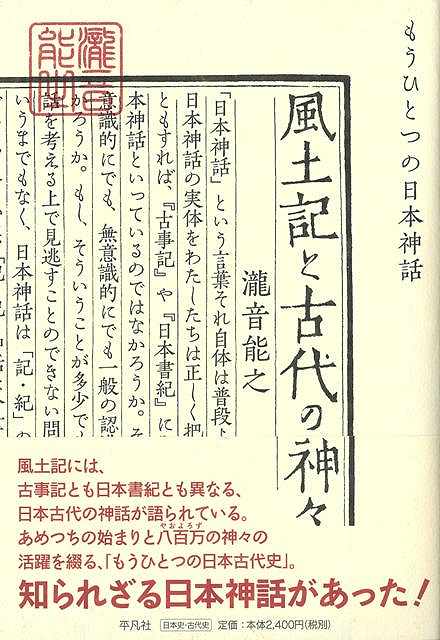 もうひとつの日本神話
風土記と古代の神々
瀧音能之
瀧音
能之
「日本神話」という言葉それ自体は普段よ
日本神話の実体をわたしたちは正しく把
ともすれば、『古事記』や『日本書紀』に
本神話といっているのではなかろうか。そ
意識的にでも、無意識的にでも一般の認
かろうか。もし、そういうことが多少でも
話を考える上で見逃すことのできない問
いうまでもなく、日本神話は「記・紀」の
風土記には、
古事記とも日本書紀とも異なる、
日本古代の神話が語られている。
あめつちの始まりと八百万の神々の
やおよろず
活躍を綴る、「もうひとつの日本古代史」。
知られざる日本神話があった!
平凡社 日本史・古代史 定価:本体2,400円(税別)